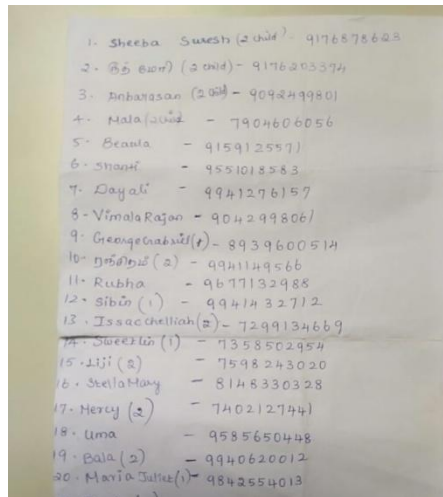 1. Sheeba Suresh (2 child) - 9176878623
2. (2 child) - 9176203374
3. Anbarasan (2 child) - 9092499801
4. Mala (2 child) - 7904606056
5- Beaula - 9159125571
6 - Shanti - 9551018583
7. Dayali - 9941276157
8- Vimala Rajan - 9042998061
9- George Gabriel (1) - 8939600514
10- (2) - 9941149566
11- Rubha - 9677132988
12- Sibin (1) - 9941432712
13. Issac chelliah (2) - 7299134669
14. Sweetlin (1) - 7358502954
15. Liji (2) - 7598243020
16. Stella Mary - 8148330328
17. Mercy (2) - 7402127441
18. Uma - 9585650448
19. Bala (2) - 9940620012
20. Maria Juliet (1) - 9842554013